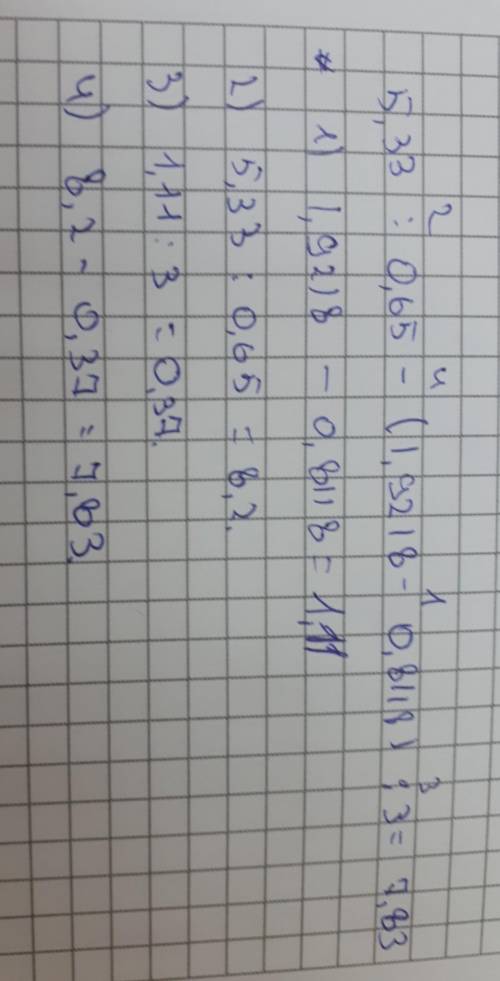 5,33 : 0,65 - (1,9218 - 0,8118) : 3 = 7,83
2 4 1 3
* 1) 1,9218 - 0,8118 = 1,11
2) 5,33 : 0,65 = 8,2.
3) 1,11 : 3 = 0,37.
4) 8,2 - 0,37 = 7,83.